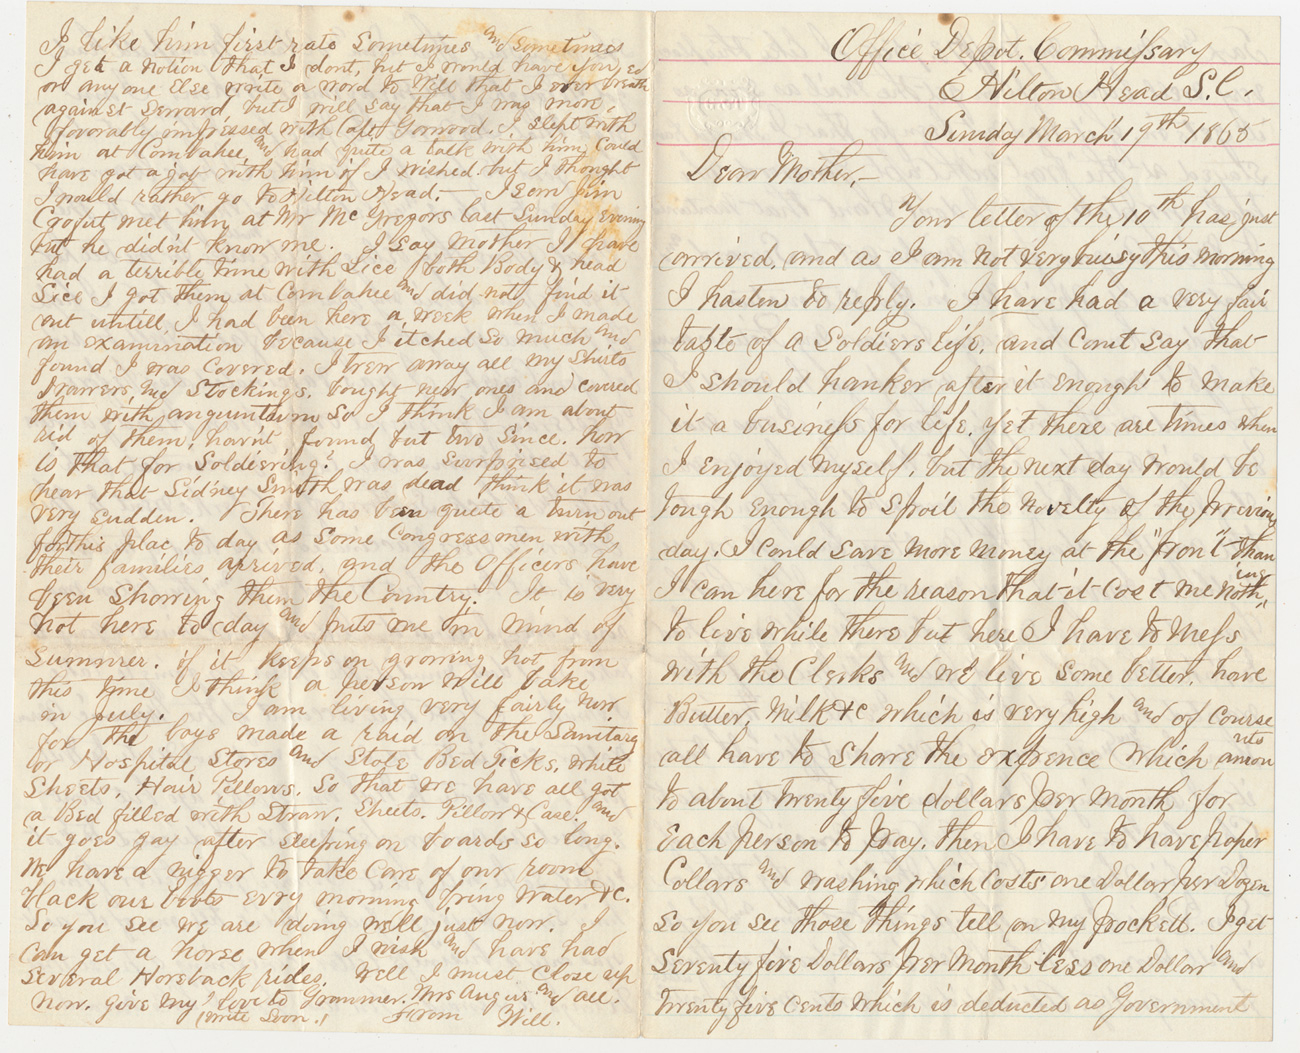 Office Depot. Commissary
Hilton Head S.C.
Sunday March 19th 1865
Dear Mother,—
"Your letter of the 10th has just
arrived, and as I am not very buisy this morning
I hasten to reply. I have had a very fair
taste of a Soldiers life, and Cant say that
I should hanker after it enough to make
it a business for life, yet there are times when
I enjoyed myself, but the next day would be
tough enough to spoil the novelty of the previous
day. I could save more money at the "front" than
I can here for the reason that it cost me nothing
to live while there but here I have to Mess
with the Clerks and we live some better, have
Butter, Milk &c which is very high and of course
all have to share the expence which amounts
to about twenty five dollars per month for
each person to pay, then I have to have paper
Collars and washing which costs one Dollar per Dozen
So you see those things tell on my pockett. I get
Seventy five Dollars per Month less one Dollar and
twenty five cents which is deducted as Government
I like him first rate Sometimes and sometimes
I get a notion that I dont, but I would have you
or any one else write a word to Will that I ever breath
against Seward but I will say that I was more
favorably impressed with Capt Gorwood. I slept with
him at Combahee and had quite a talk with him, Could
have got a job with him if I wished but I thought
I would rather go to Hilton Head.— I saw Jim
Crofut met him at Mr McGregors last Sunday Evening
but he didn't know me. I say Mother I have
had a terrible time with Lice (both Body & head
Lice I got them at Combahee and did not find it
out untill I had been here a week when I made
an examination because I itched so much and
found I was Covered. I trew away all my Shirts
Drawers and Stockings, bought new ones and covered
them with anguintum so I think I am about
rid of them, havnt found but two since. how
is that for Soldiering? I was surprised to
hear that Sidney Smith was dead think it was
very sudden. There has been quite a turn out
for this plac to day as some Congressmen with
their families arrived, and the Officers have
been showing them the Country. It is very
hot here to day and puts me in mind of
Summer. if it keeps on growing hot from
this time I think a person will bake
in July. I am living very fairly now
for the boys made a raid on the Sanitary
or Hospital Stores and Stole Bed Ticks, white
Sheets, Hair Pillows. So that we have all got
a Bed filled with Straw, Sheets, Pillow & Case, and
it goes gay after sleeping on boards so long.
We have a nigger to take care of our room
black our boots evry morning bring water &c.
So you see we are doing well just now. I
can get a horse when I wish and have had
several Horseback rides. Well I must close up
now. give my love to Grammer. Mrs Angus and all.
(Write Soon.) From Will.